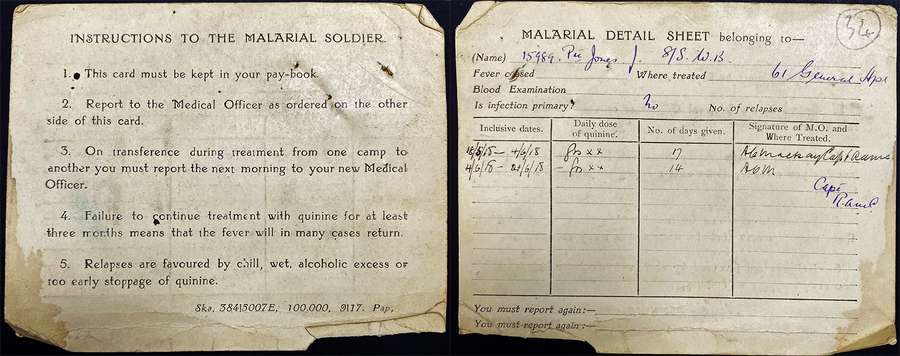 INSTRUCTIONS TO THE MALARIAL SOLDIER.
1. This card must be kept in your pay-book.
2. Report to the Medical Officer as ordered on the other
side of this card.
3. On transference during treatment from one camp to
another you must report the next morning to your new Medical
Officer.
4. Failure to continue treatment with quinine for at least
three months means that the fever will in many cases return.
5. Relapses are favoured by chill, wet, alcoholic excess or
too early stoppage of quinine.
Ska, 384|5007E, 100,000, 9|17. Pap,
34
MALARIAL DETAIL SHEET belonging to—
(Name) 15989. Pte Jones J. 8/S.W.B.
Fever ceased Where treated 61 General Hpl
Blood Examination
Is infection primary? No No. of relapses
Inclusive dates. Daily dose of quinine. No. of days given. Signature of M.O. and Where Treated.
18/5/18 – 4/6/18 grs xx 17 Capt RAMC
4/6/18 – grs xx 14 AGM
Capt
R.A.M.C.
You must report again:—
You must report again:—